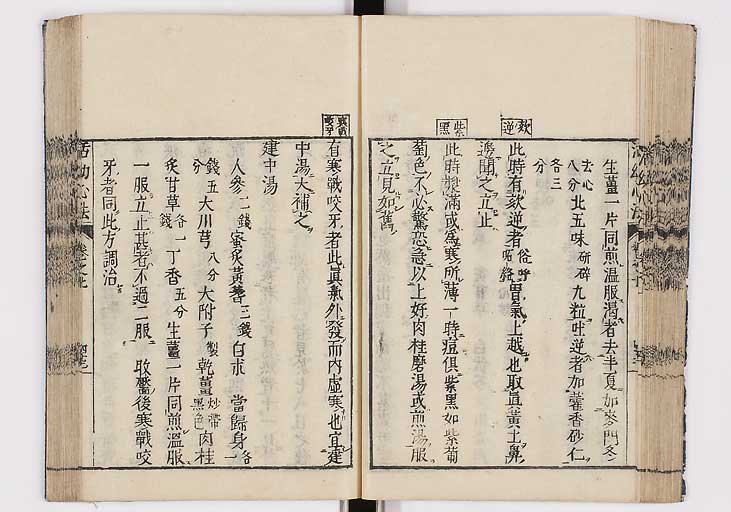 生薑一片同煎溫服渴者去半夏加麥門冬
去心八分北五味研碎九粒吐逆者加藿香砂仁
各三分
欬逆
此時有欬逆者俗呼胃氣上越也取真黃土鼻
邊聞之立止
紫黑
此時漿滿或為寒所薄一時痘俱紫黑如紫葡
萄色不必驚恐急以上好肉桂磨湯或煎湯服
之立見如舊
有寒戰咬牙者此真氣外發而內虛寒也宜建
中湯大補之
建中湯
人參二錢蜜炙黃耆三錢白朮當歸身各一
錢五分大川芎八分大附子製乾薑炒帶黑色肉桂
炙甘草各一錢丁香五分生薑一片同煎溫服
一服立止甚者不過二服收靨後寒戰咬
牙者同此方調治
活幼心法